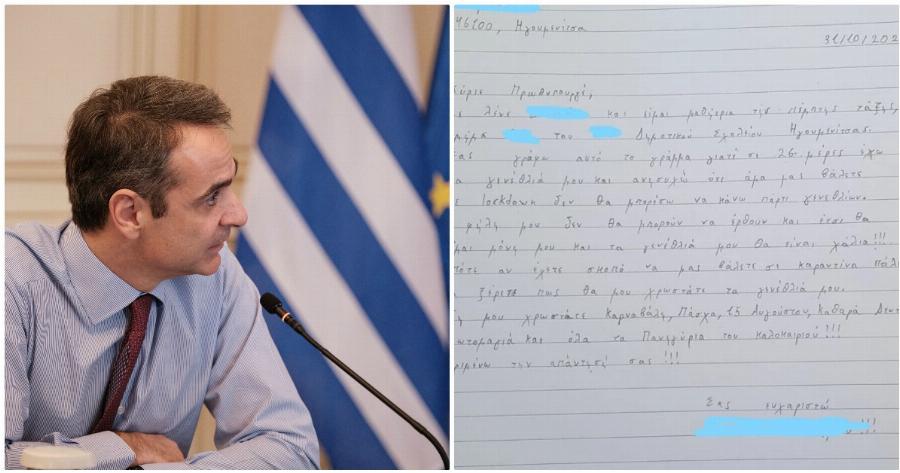 46100, Ηγουμενίτσα
31/10/202
Κύριε Πρωθυπουργέ,
ε λένε και είμαι μαθήτρια της πέμπτης τάξης,
μήμα του Δημοτικού Σχολείου Ηγουμενίτσας.
ας γράφω αυτό το γράμμα γιατί σε 26 μέρες έχω
α γενέθλιά μου και ανησυχώ ότι άμα μας βάλετε
ε lockdown δεν θα μπορέσω να κάνω πάρτι γενεθλίων.
φίλη μου δεν θα μπορούν να έρθουν και έτσι θα
μαι μόνη μου και τα γενέθλιά μου θα είναι χάλια!!!
τότε αν έχετε σκοπό να μας βάλετε σε καραντίνα πάλι
α ξέρετε πως θα μου χρωστάτε τα γενέθλιά μου.
ς μου χρωστάτε Καρναβάλι, Πάσχα, 15 Αύγουστου, Καθαρά Δευτ
ωτομαγιά και όλα τα Πανηγύρια του καλοκαιριού!!!
ριμένω την απάντησή σας!!!
Σας ευχαριστώ
!!!